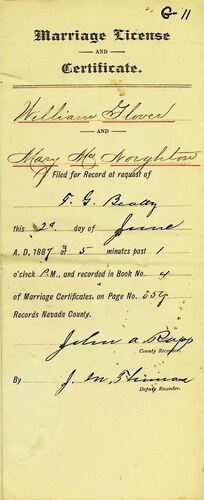 G-11
Marriage License
AND
Certificate.
William Glover
AND
Mary Mc Noughton
Filed for Record at request of
T. G. Beatty
this 29 day of June
A. D. 1887 at 5 minutes past 1
o'clock P.M., and recorded in Book No. 4
of Marriage Certificates, on Page No. 559
Records Nevada County.
John A Rapp
County Recorder.
By J. M.
Deputy Recorder.